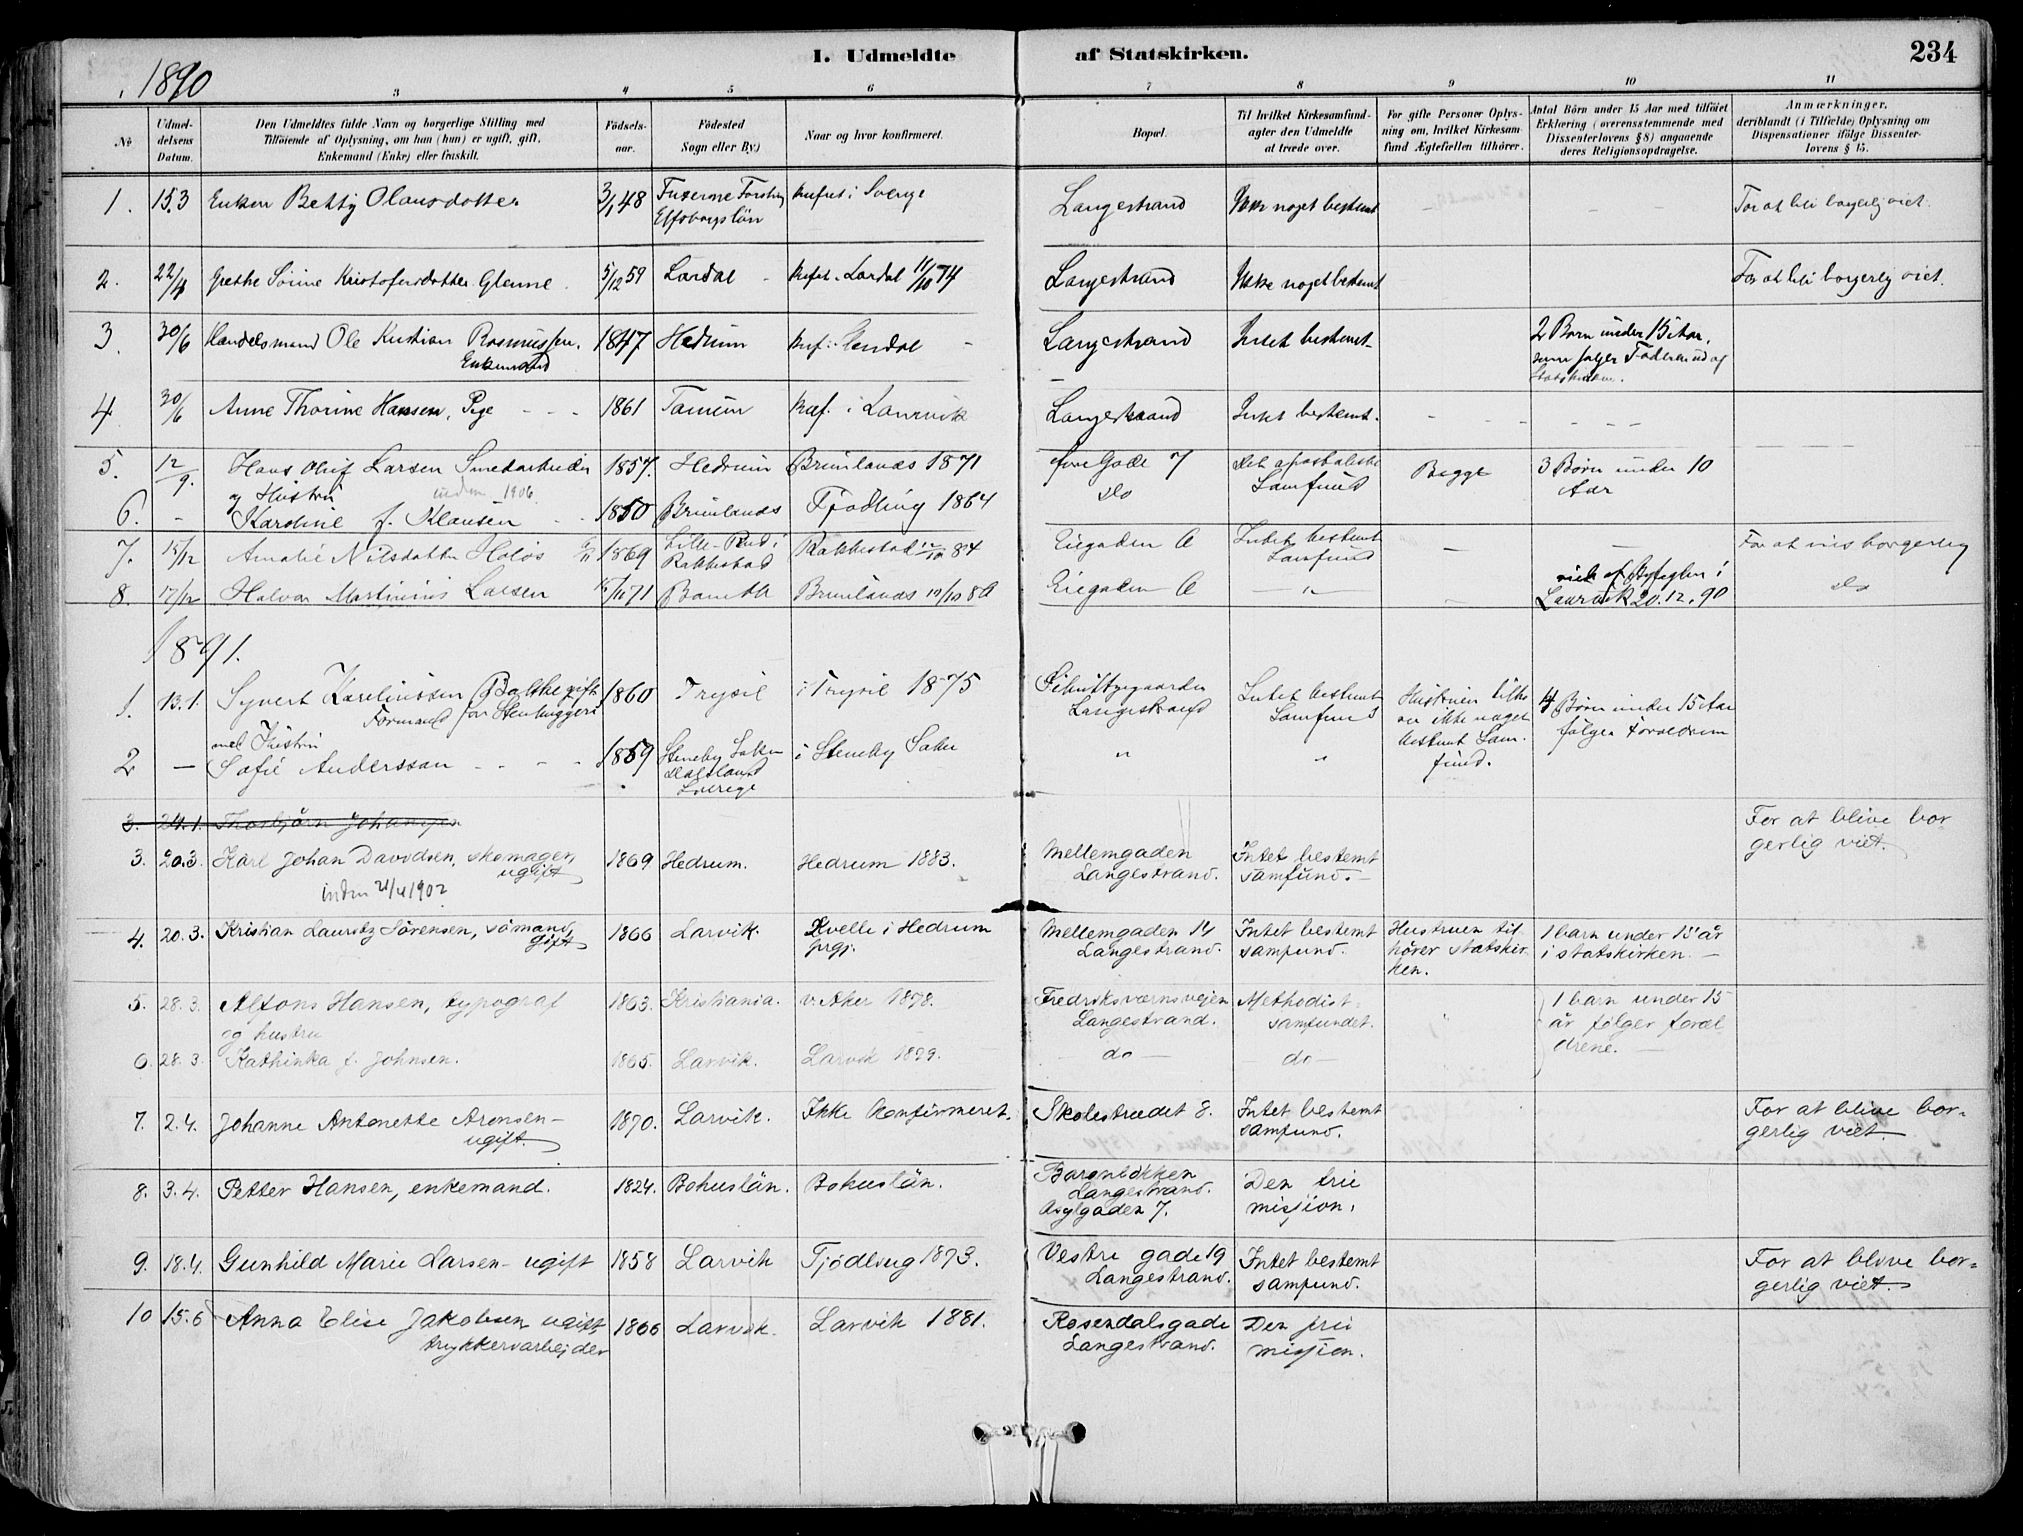 I. Udmeldte af Statskirken. 234
1890
3 4 5 6 7 8 9 10 11
No
Udmeldelsens Datum.
Den Udmeldtes fulde Navn og borgerlige Stilling med Tilføiende af Oplysning, om han (hun) er ugift, gift, Enkemand (Enke) eller fraskilt.
Fødselsaar.
Fødested Sogn eller By)
Naar og hvor konfirmeret.
Bopæl.
Til hvilket Kirkesamfund agter den Udmeldte at træde over.
For gifte Personer Oplysning om, hvilket Kirkesamfund Ægtefællen tilhører.
Antal Børn under 15 Aar med tilføiet Erklæring (overensstemmende med Dissenterlovens § 8) angaaende deres Religionsopdragelse.
Anmærkninger, deriblandt (i Tilfælde) Oplysning om Dispensationer ifølge Dissenterlovens § 15.
1. 15.3 Enken Betty Olausdotter 3/1 48 Elfsborgslän Knfret i Sverge Langestrand Ikke noget bestemt For at bli borgerlig viet.
2. 22/4 Grethe Sørine Kristofersdatter Glenne. 5/12 59 Lardal Knfrt. Lardal 11/10 74 Langestrand Ikke noget bestemt For at bli borgerlig viet.
3. 30/6 Handelsmand Ole Kristian Rasmussen, Enkemand 1847 Hedrum Knf. i Langestrand Intet bestemt 2 Børn under 15 Aar, som følger Faderen ud af Statskirken.
4. 30/6 Anne Thorine Hansen, Pige 1861 Tanum Knf. i Laurvik Langestrand Intet bestemt.
5. 12/9. Hans Oluf Larsen Smedarbeider 1857. Hedrum Brunlanæs 1871 Gade 7 Det apostoliske Samfund Begge 3 Børn under 10 Aar
og Hustru indm 1906
6. - Karoline f. Klausen 1850 Brunlanæs Tjødling 1864 do
7. 15/12 Amalie Nilsdatter Holøs 1869 Lille-Rud i Rakkestad Rakkestad 12/10 84 Eiegaden 6 Intet bestemt Samfund — — For at vies borgerlig
8. 17/12 Halvor Martinius Larsen 15/11 71 Bamble Brunlanæs 12/10 86 Eiegaden 6 — " viet af Byfogden i Laurvik 20.12.90 do
1891.
1. 13.1. Syvert Karelinssen Balske gift Formand for Stenhuggeri 1860 Trysil i Trysil 1875 Langestrand Intet bestemt Samfund Hustruen tilhører ikke noget bestemt Samfund. 4 Børn under 15 Aar følger Forældrene
med Hustru
2 — Sofie Anderssan 1859 Steneby Dalsland Sverige i Steneby " "
3. 24.1. Thorbjørn Johansen
3. 20.3. Karl Johan Davidsen, skomager, ugift 1869 Hedrum. Hedrum 1883. Mellemgaden Langestrand. Intet bestemt samfund. For at blive borgerlig viet.
indm 21/4 1902
4. 20.3. Kristian Lauritz Sørensen, sømand, gift 1866 Larvik. Kvelle i Hedrum prgj. Mellemgaden 14 Langestrand. Intet bestemt samfund. Hustruen tilhører statskirken. 1 barn under 15 år i statskirken.
5. 28.3. Alfons Hansen, typograf 1863. Kristiania. v. Aker 1878. Fredriksværnsvejen Langestrand. Methodistsamfundet. 1 barn under 15 år følger forældrene.
og hustru
6. 28.3. Kathinka f. Johnsen. 1865. Larvik. Larvik 1879. do — do —
7. 2.4. Johanne Antonette Aronsen — ugift. 1870. Larvik. Ikke konfirmeret. Skolestrædet 8. Intet bestemt samfund. For at blive borgerlig viet.
8. 3.4. Petter Hansen, enkemand. 1824. Bohuslän. Bohuslän. Baronløkken Langestrand. Asylgaden 7. Den frie misjion.
9. 18.4. Gunhild Marie Larsen — ugift 1858 Larvik Tjødling 1873. Vestre gade 19 Langestrand. Intet bestemt samfund. For at blive borgerlig viet.
10 15.6 Anna Elise Jakobsen ugift, trykkeriarbejder 1866 Larvik. Larvik 1881. Rosendalsgade Langestrand. Den frie misjion.